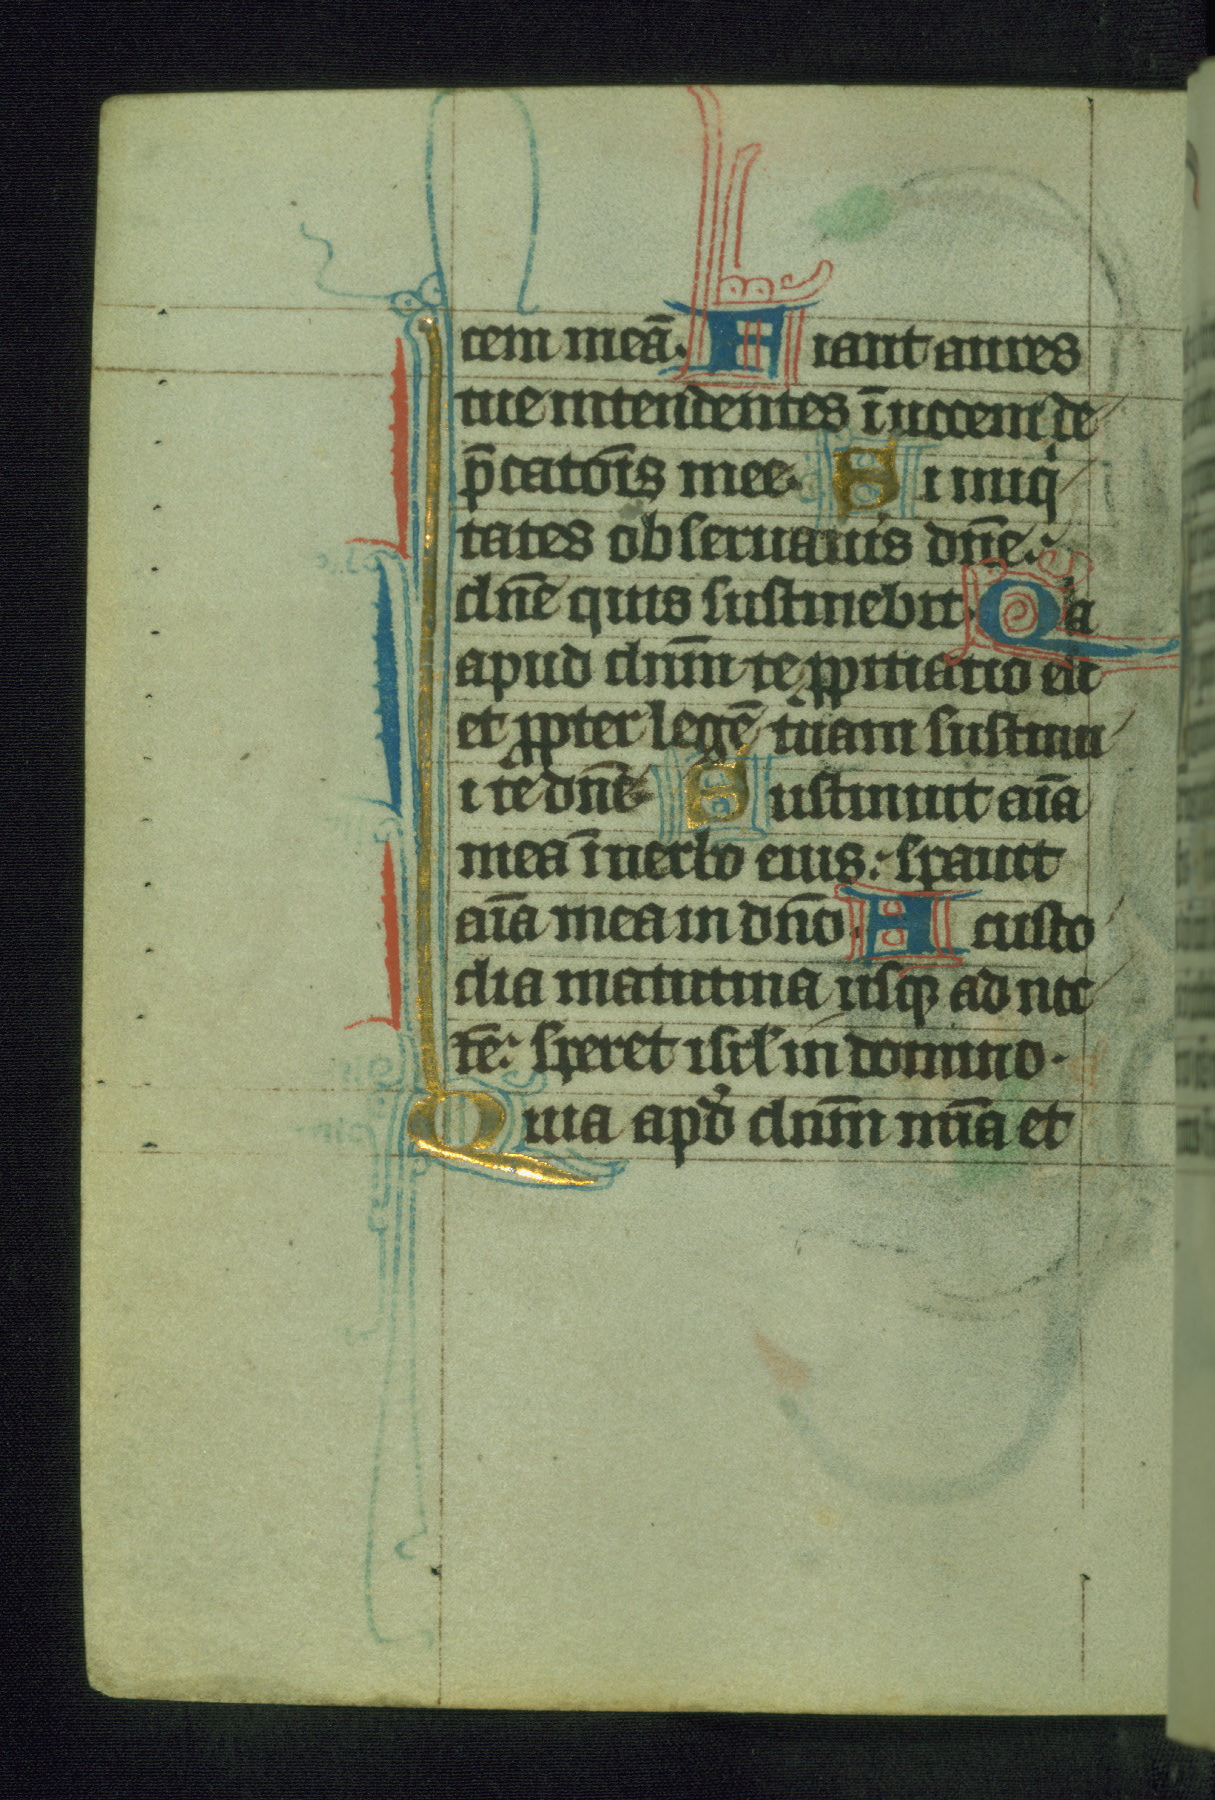 cem meā. Fiant aures
tue intendentes ī uocem de
p̄catōis mee. Si iniqi
tates obseruauis dn̄e:
dn̄e quis sustinebit. Qa
apud dn̄m te ꝓpitiatio est
et ꝓpter legē tuam sustinu
i te dn̄e Sustinuit aīa
mea ī uerbo eius: sꝑauit
aīa mea in dn̄o. A custo
dia matutina usqꝫ ad noc
tē: speret isrl̄ in domino.
Quia apd̕ dn̄m mīa et